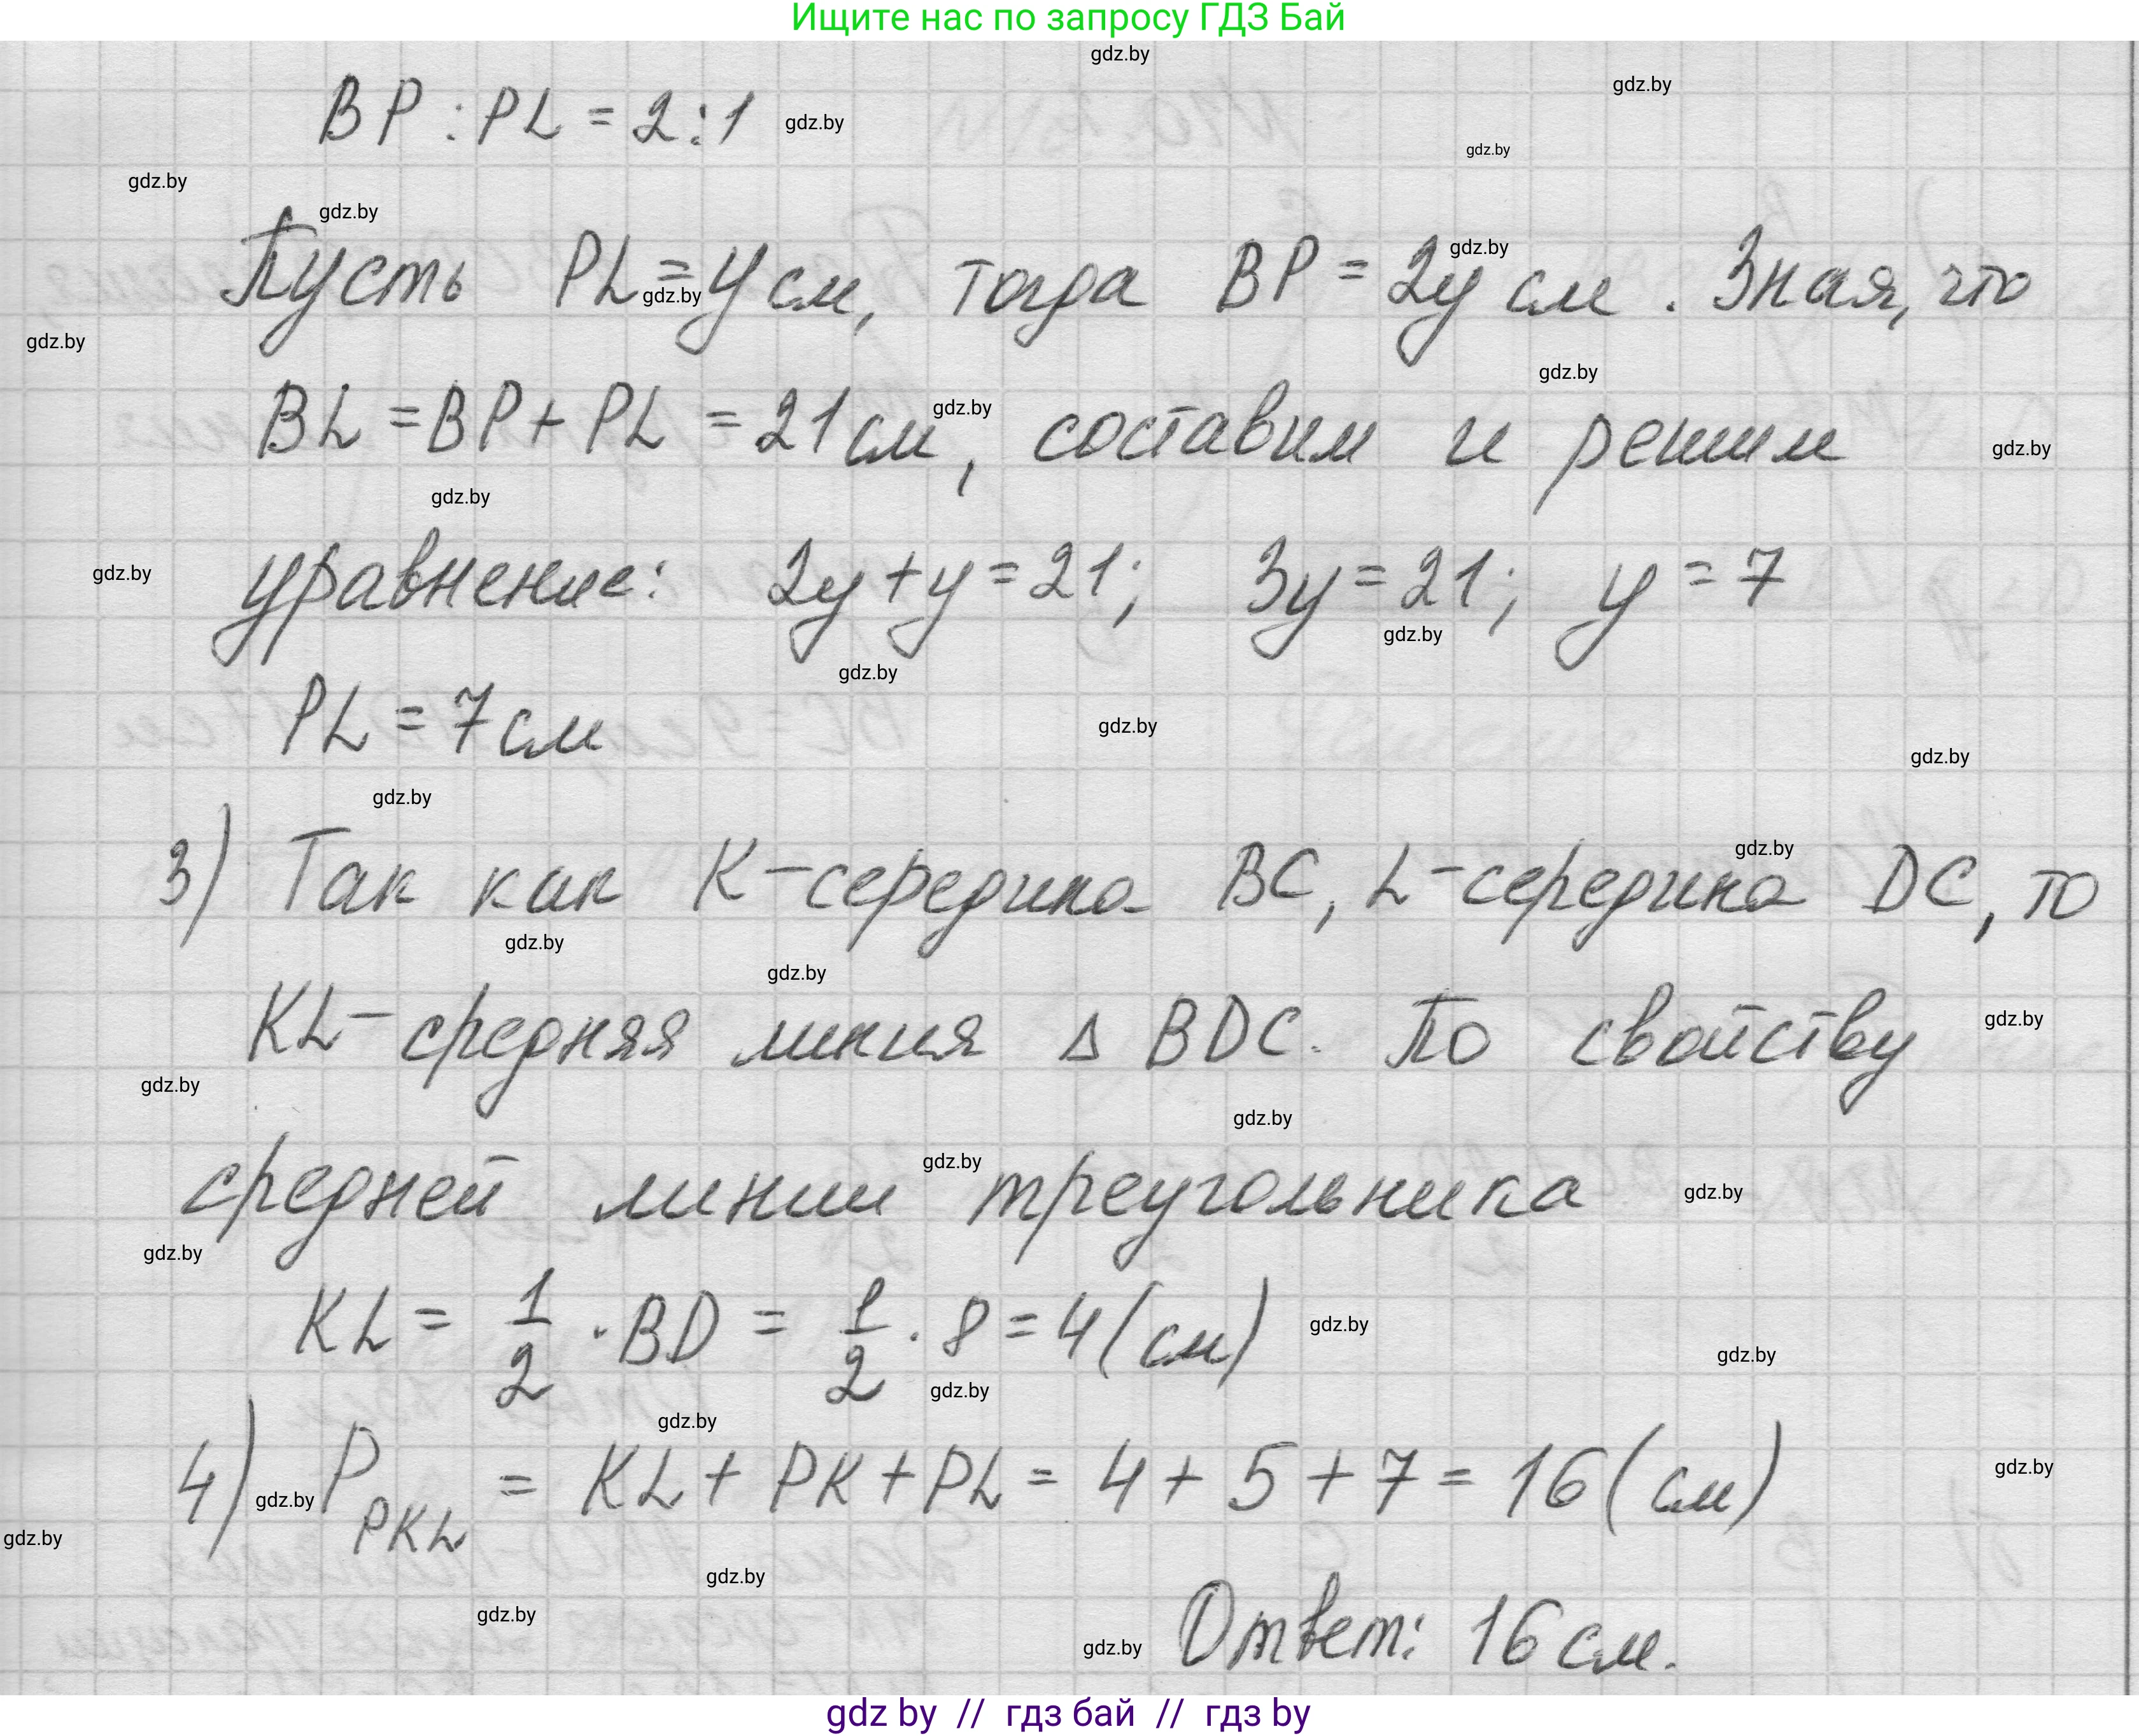 Ищите нас по запросу ГДЗ Бай
gdz.by
gdz.by
BP : PL = 2 : 1 gdz.by
gdz.by
gdz.by
gdz.by
gdz.by
Пусть PL = y см, тогда BP = 2y см. Зная, что
gdz.by
gdz.by
gdz.by
BL = BP + PL = 21 см, составим и решим
gdz.by
gdz.by
gdz.by
уравнение: 2y + y = 21; 3y = 21; y = 7
gdz.by
gdz.by
gdz.by
PL = 7 см
gdz.by
gdz.by
gdz.by
3) Так как K - середина BC, L - середина DC, то
gdz.by
gdz.by
gdz.by
KL - средняя линия Δ BDC. По свойству
gdz.by
gdz.by
gdz.by
средней линии треугольника
gdz.by
gdz.by
gdz.by
KL = 1/2 · BD = 1/2 · 8 = 4 (см)
gdz.by
gdz.by
gdz.by
gdz.by
4) P PKL = KL + PK + PL = 4 + 5 + 7 = 16 (см)
gdz.by
gdz.by
gdz.by
gdz.by
gdz.by
gdz.by
Ответ: 16 см.
gdz by // гдз бай // гдз by